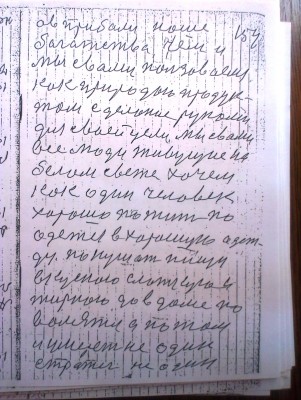 ов прибали наше 154
багатства чем и
мы свами ползоваем
как природыю продук
том сделоные руками
для своей цели, мы свами
все люди живущие на
белом свете хочем
как один человек
хорошо пожит по
одетця в хорошую адеж
ду, покушат пищу
вкусного слаткура и
жирного да в доме по
валятца потом
и умерет не один
стратег не один